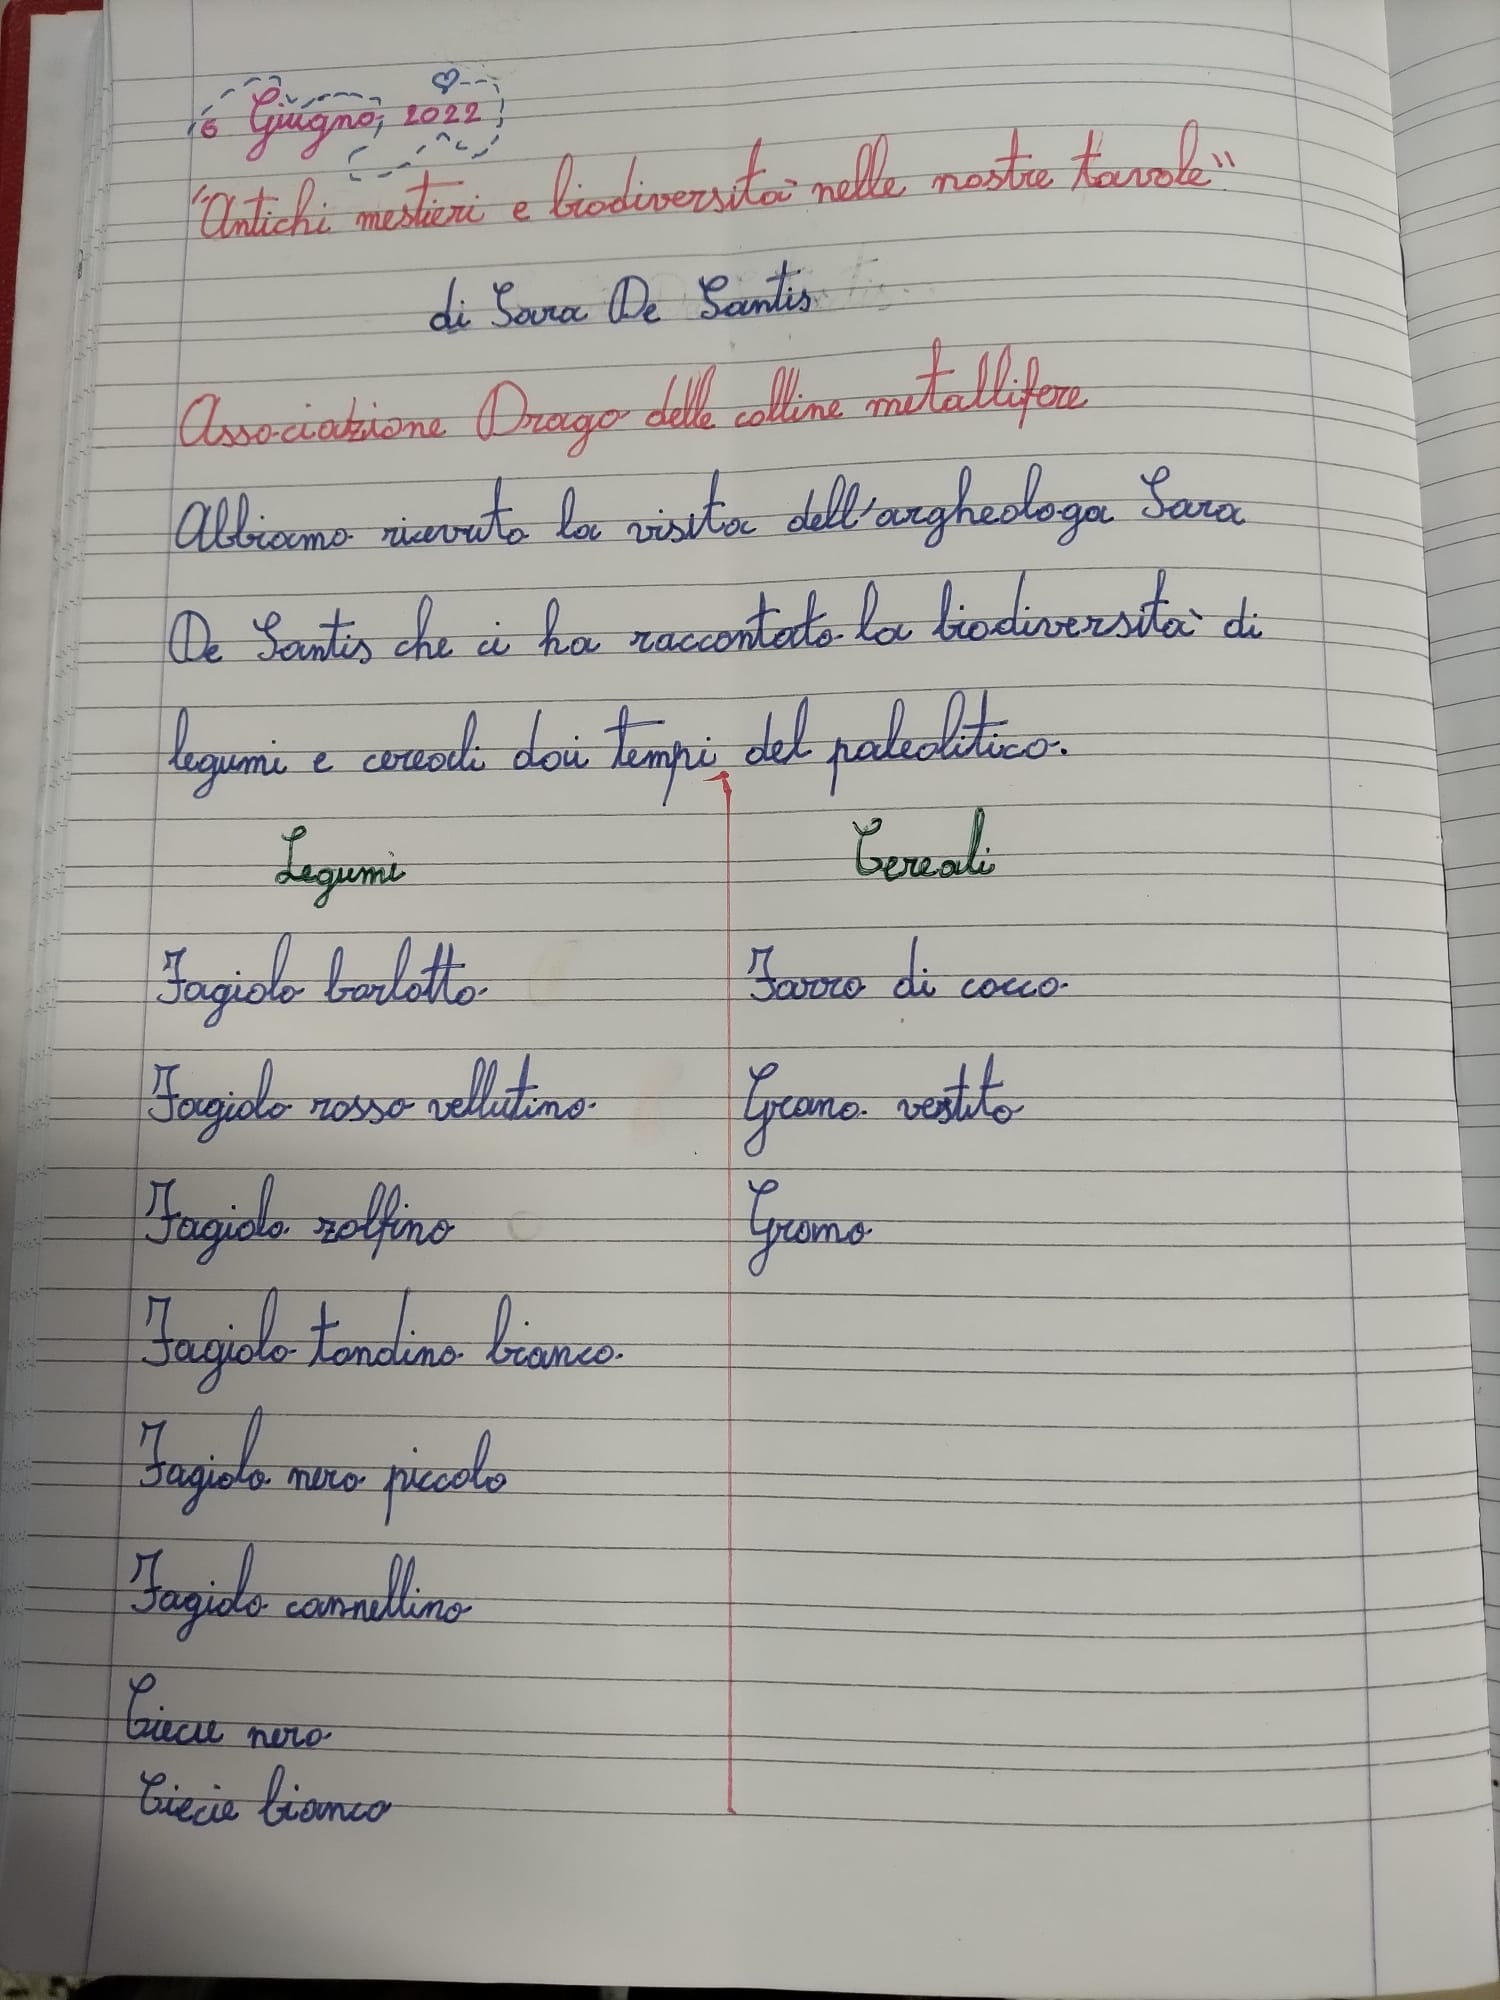 6 Giugno, 2022
"Antichi mestieri e biodiversità nelle nostre tavole"
di Sara De Santis
Associazione Drago delle colline metallifere
Abbiamo ricevuto la visita dell'argheologa Sara
De Santis che ci ha raccontato la biodiversità di
legumi e cereali dai tempi del paleolitico.
Legumi
Fagiolo borlotto
Fagiolo rosso vellutino
Fagiolo zolfino
Fagiolo tondino bianco.
Fagiolo nero piccolo
Fagiolo cannellino
Ciecie nero
Ciecie bianco
Cereali
Farro di cocco
Grano vestito
Grano